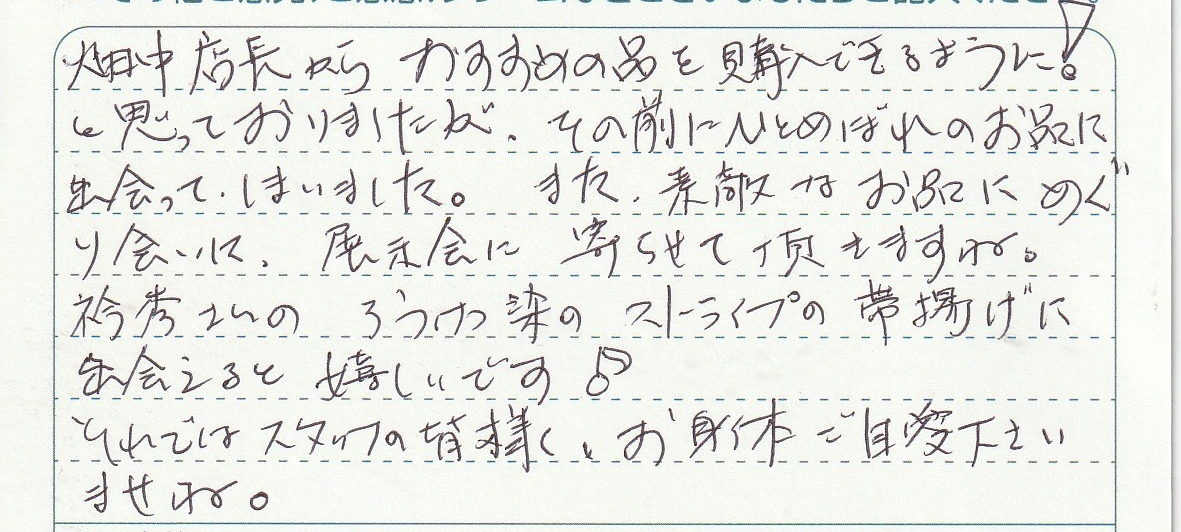 畑中店長から おすすめの品を購入できるように!
と思っておりましたが、その前にひとめぼれのお品に
出会って、しまいました。 また、素敵なお品にめぐ
り会いに、展示会に 寄らせて頂きますね。
衿秀さんの ろうけつ染の ストライプの 帯揚げに
出会えると 嬉しいです♪
それではスタッフの皆様く、お身体ご自愛下さい
ませね。